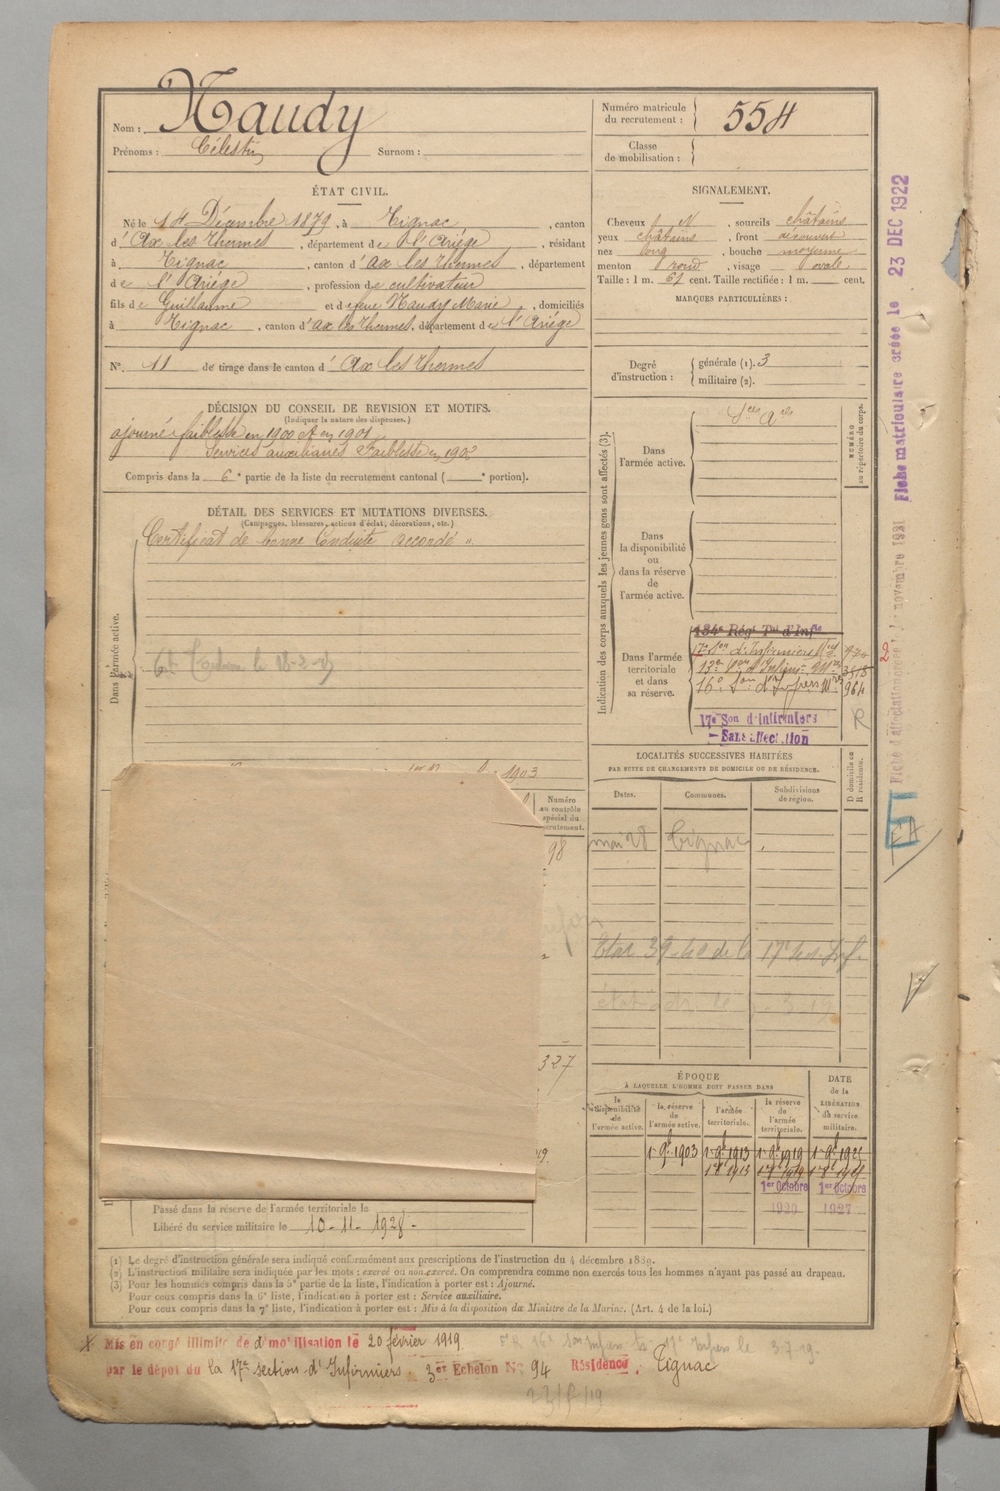 Nom : Naudy
Prénoms : Célestin Surnom :
Numéro matricule du recrutement : 554
Classe de mobilisation :
ÉTAT CIVIL.
Né le 14 Décembre 1879, à Tignac, canton
d'Ax les Thermes, département de l'Ariège, résidant
à Tignac, canton d'Ax les Thermes, département
de l'Ariège, profession de cultivateur
fils de Guillaume et de feue Naudy Marie, domiciliés
à Tignac, canton d'Ax les Thermes, département de l'Ariège
N° 11 de tirage dans le canton d'Ax les Thermes
SIGNALEMENT.
Cheveux N, sourcils châtains
yeux châtains, front découvert
nez long, bouche moyenne
menton rond, visage ovale
Taille : 1 m. 67 cent. Taille rectifiée : 1 m. cent.
MARQUES PARTICULIÈRES :
Degré d'instruction : générale (1). 3
militaire (2).
DÉCISION DU CONSEIL DE REVISION ET MOTIFS.
(Indiquer la nature des dispenses.)
ajourné faiblesse en 1900 et en 1901
Services auxiliaires Faiblesse en 1902
Compris dans la 6e partie de la liste du recrutement cantonal ( e portion).
DÉTAIL DES SERVICES ET MUTATIONS DIVERSES.
(Campagnes, blessures, actions d'éclat, décorations, etc.)
Certificat de bonne Conduite accordé "
Dans l'armée active.
1903
Numéro au contrôle spécial du recrutement.
98
327
19.
Indication des corps auxquels les jeunes gens sont affectés (3).
NUMÉRO au répertoire du corps.
Dans l'armée active.
Dans la disponibilité ou dans la réserve de l'armée active.
Dans l'armée territoriale et dans sa réserve.
134e Régt Tal d'Infie
16e Son d' 964
17e Son d'infirmiers
Sans affectation
R
LOCALITÉS SUCCESSIVES HABITÉES
PAR SUITE DE CHANGEMENTS DE DOMICILE OU DE RÉSIDENCE.
Dates. Communes. Subdivisions de région. D domicile ou R résidence.
mai 28 Tignac
ÉPOQUE
À LAQUELLE L'HOMME DOIT PASSER DANS
la disponibilité de l'armée active. la réserve de l'armée active. l'armée territoriale. la réserve de l'armée territoriale. DATE de la LIBÉRATION du service militaire.
1er Octobre 1er Octobre
1920 1927
Passé dans la réserve de l'armée territoriale le
Libéré du service militaire le 10-11-1928-
(1) Le degré d'instruction générale sera indiqué conformément aux prescriptions de l'instruction du 4 décembre 1889.
(2) L'instruction militaire sera indiquée par les mots : exercé ou non exercé. On comprendra comme non exercés tous les hommes n'ayant pas passé au drapeau.
(3) Pour les hommes compris dans la 5e partie de la liste, l'indication à porter est : Ajourné.
Pour ceux compris dans la 6e liste, l'indication à porter est : Service auxiliaire.
Pour ceux compris dans la 7e liste, l'indication à porter est : Mis à la disposition du Ministre de la Marine. (Art. 4 de la loi.)
Mis en congé illimité de démobilisation le 20 février 1919
par le dépôt du la 17e section d'Infirmiers. 3er Echelon No 94 Résidence. Tignac
Fiche matriculaire créée le 23 DEC 1922